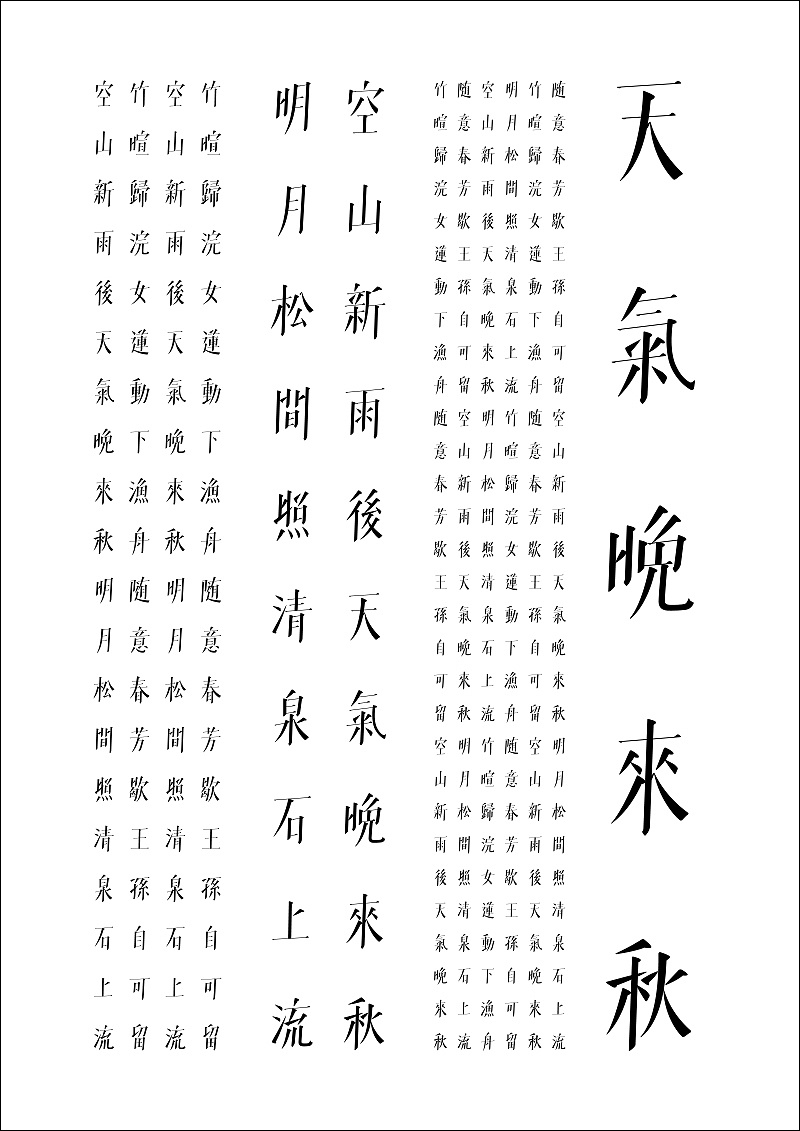 天氣晚來秋
随意春芳歇王孫自可留空山新雨後天氣晚來秋明月松間照清泉石上流
竹暄歸浣女蓮動下漁舟随意春芳歇王孫自可留空山新雨後天氣晚來秋
明月松間照清泉石上流竹暄歸浣女蓮動下漁舟随意春芳歇王孫自可留
空山新雨後天氣晚來秋明月松間照清泉石上流竹暄歸浣女蓮動下漁舟
随意春芳歇王孫自可留空山新雨後天氣晚來秋明月松間照清泉石上流
竹暄歸浣女蓮動下漁舟随意春芳歇王孫自可留空山新雨後天氣晚來秋
空山新雨後天氣晚來秋
明月松間照清泉石上流
竹暄歸浣女蓮動下漁舟随意春芳歇王孫自可留
空山新雨後天氣晚來秋明月松間照清泉石上流
竹暄歸浣女蓮動下漁舟随意春芳歇王孫自可留
空山新雨後天氣晚來秋明月松間照清泉石上流